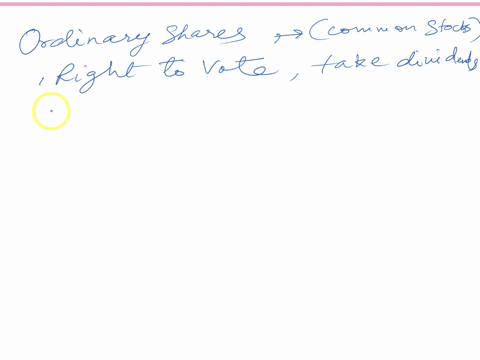 Ordinary Shares → (common stocks)
, Right to Vote, take dividends